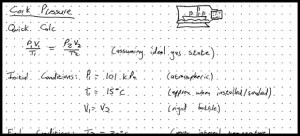 Cork Pressure
Quick Calc
P₁V₁/T₁ = P₂V₂/T₂ (assuming ideal gas state)
Initial Conditions: P₁ = 101 kPa (atmospheric)
T₁ = 15°C (approx when installed/sealed)
V₁ = V₂ (rigid bottle)